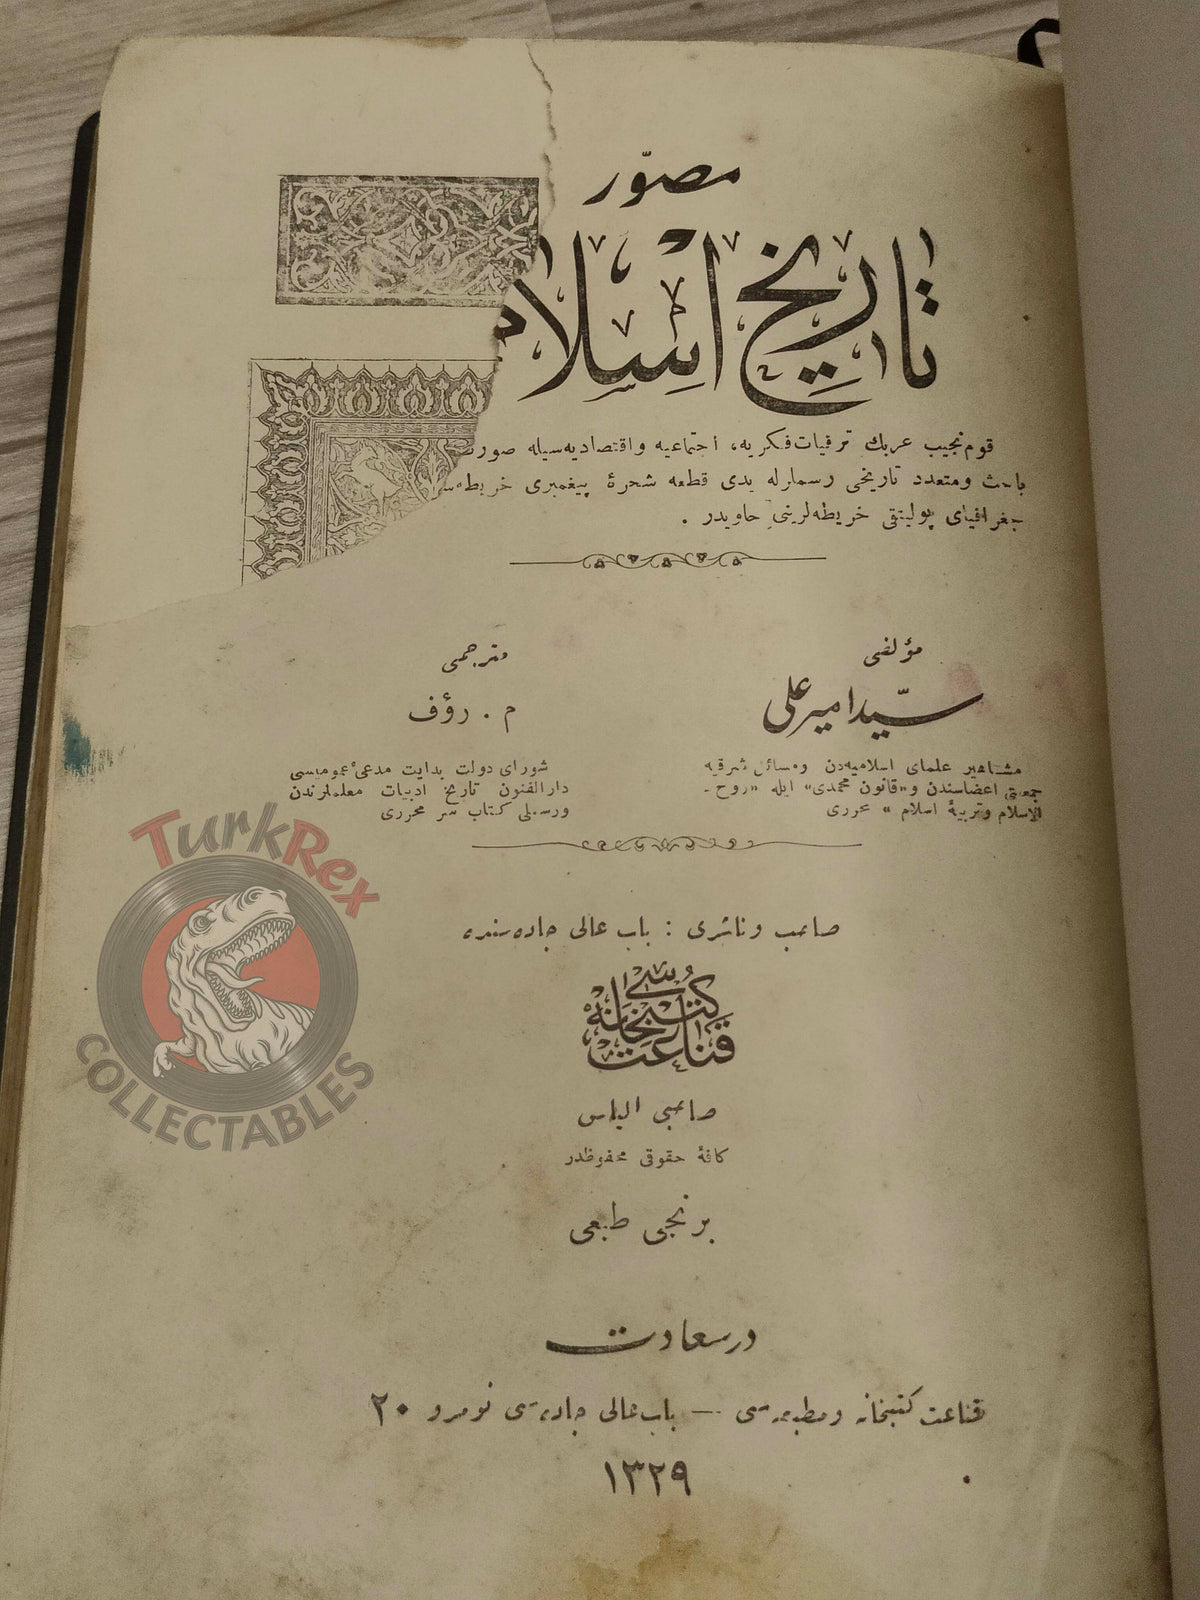 مصوّر
تاريخ اسلام
قوم نجيب عربك ترقيات فكريه، اجتماعيه واقتصاديه سيله صورت
باحث ومتعدد تاريخى رسملرله يدى قطعه شجرهٔ پيغمبرى خريطه‌سى
جغرافياى پوليتقى خريطه‌لرينى حاويدر .
مؤلفى
سيّد امير على
مشاهير علماى اسلاميه‌دن ومسائل شرقيه
جمعيتى اعضاسندن و «قانون محمدى» ايله «روح ـ
الاسلام وتربيهٔ اسلام» محررى
مترجمى
م . رؤف
شوراى دولت بدايت مدعئ عموميسى
دارالفنون تاريخ ادبيات معلملرندن
ورسملى كتاب سر محررى
صاحب وناشرى : باب عالى جاده‌سنده
قناعت كتبخانه‌سى
صاحبى الياس
كافهٔ حقوقى محفوظدر
برنجى طبعى
درسعادت
قناعت كتبخانه ومطبعه‌سى — باب عالى جاده‌سى نومرو ٢٠
١٣٢٩
TurkRex
COLLECTABLES